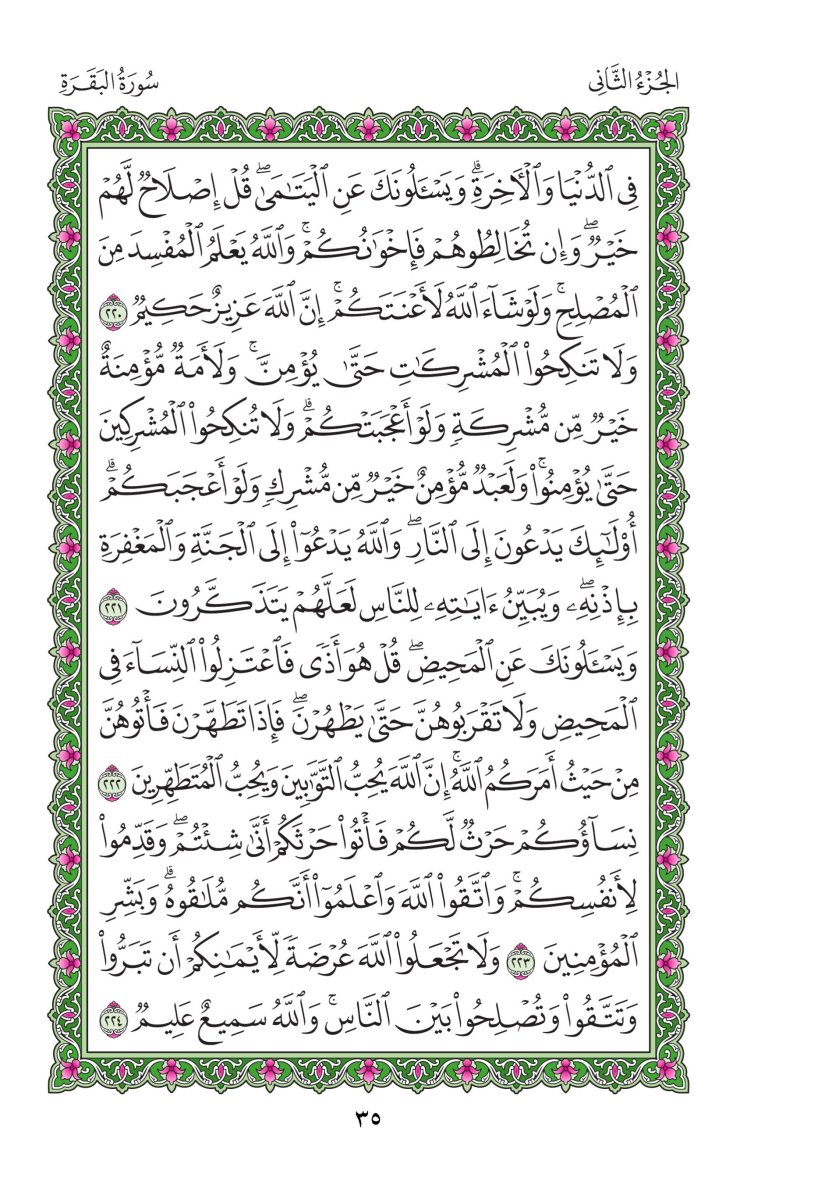 الجُزْءُ الثَّانِى
سُورَةُ البَقَرَةِ
فِى ٱلدُّنْيَا وَٱلْـَٔاخِرَةِ ۗ وَيَسْـَٔلُونَكَ عَنِ ٱلْيَتَـٰمَىٰ ۖ قُلْ إِصْلَاحٌ لَّهُمْ
خَيْرٌ ۖ وَإِن تُخَالِطُوهُمْ فَإِخْوَٰنُكُمْ ۚ وَٱللَّهُ يَعْلَمُ ٱلْمُفْسِدَ مِنَ
ٱلْمُصْلِحِ ۚ وَلَوْ شَآءَ ٱللَّهُ لَأَعْنَتَكُمْ ۚ إِنَّ ٱللَّهَ عَزِيزٌ حَكِيمٌ ٢٢٠
وَلَا تَنكِحُوا۟ ٱلْمُشْرِكَـٰتِ حَتَّىٰ يُؤْمِنَّ ۚ وَلَأَمَةٌ مُّؤْمِنَةٌ
خَيْرٌ مِّن مُّشْرِكَةٍ وَلَوْ أَعْجَبَتْكُمْ ۗ وَلَا تُنكِحُوا۟ ٱلْمُشْرِكِينَ
حَتَّىٰ يُؤْمِنُوا۟ ۚ وَلَعَبْدٌ مُّؤْمِنٌ خَيْرٌ مِّن مُّشْرِكٍ وَلَوْ أَعْجَبَكُمْ ۗ
أُو۟لَـٰٓئِكَ يَدْعُونَ إِلَى ٱلنَّارِ ۖ وَٱللَّهُ يَدْعُوٓا۟ إِلَى ٱلْجَنَّةِ وَٱلْمَغْفِرَةِ
بِإِذْنِهِۦ ۖ وَيُبَيِّنُ ءَايَـٰتِهِۦ لِلنَّاسِ لَعَلَّهُمْ يَتَذَكَّرُونَ ٢٢١
وَيَسْـَٔلُونَكَ عَنِ ٱلْمَحِيضِ ۖ قُلْ هُوَ أَذًى فَٱعْتَزِلُوا۟ ٱلنِّسَآءَ فِى
ٱلْمَحِيضِ وَلَا تَقْرَبُوهُنَّ حَتَّىٰ يَطْهُرْنَ ۖ فَإِذَا تَطَهَّرْنَ فَأْتُوهُنَّ
مِنْ حَيْثُ أَمَرَكُمُ ٱللَّهُ ۚ إِنَّ ٱللَّهَ يُحِبُّ ٱلتَّوَّٰبِينَ وَيُحِبُّ ٱلْمُتَطَهِّرِينَ ٢٢٢
نِسَآؤُكُمْ حَرْثٌ لَّكُمْ فَأْتُوا۟ حَرْثَكُمْ أَنَّىٰ شِئْتُمْ ۖ وَقَدِّمُوا۟
لِأَنفُسِكُمْ ۚ وَٱتَّقُوا۟ ٱللَّهَ وَٱعْلَمُوٓا۟ أَنَّكُم مُّلَـٰقُوهُ ۗ وَبَشِّرِ
ٱلْمُؤْمِنِينَ ٢٢٣ وَلَا تَجْعَلُوا۟ ٱللَّهَ عُرْضَةً لِّأَيْمَـٰنِكُمْ أَن تَبَرُّوا۟
وَتَتَّقُوا۟ وَتُصْلِحُوا۟ بَيْنَ ٱلنَّاسِ ۚ وَٱللَّهُ سَمِيعٌ عَلِيمٌ ٢٢٤
٣٥